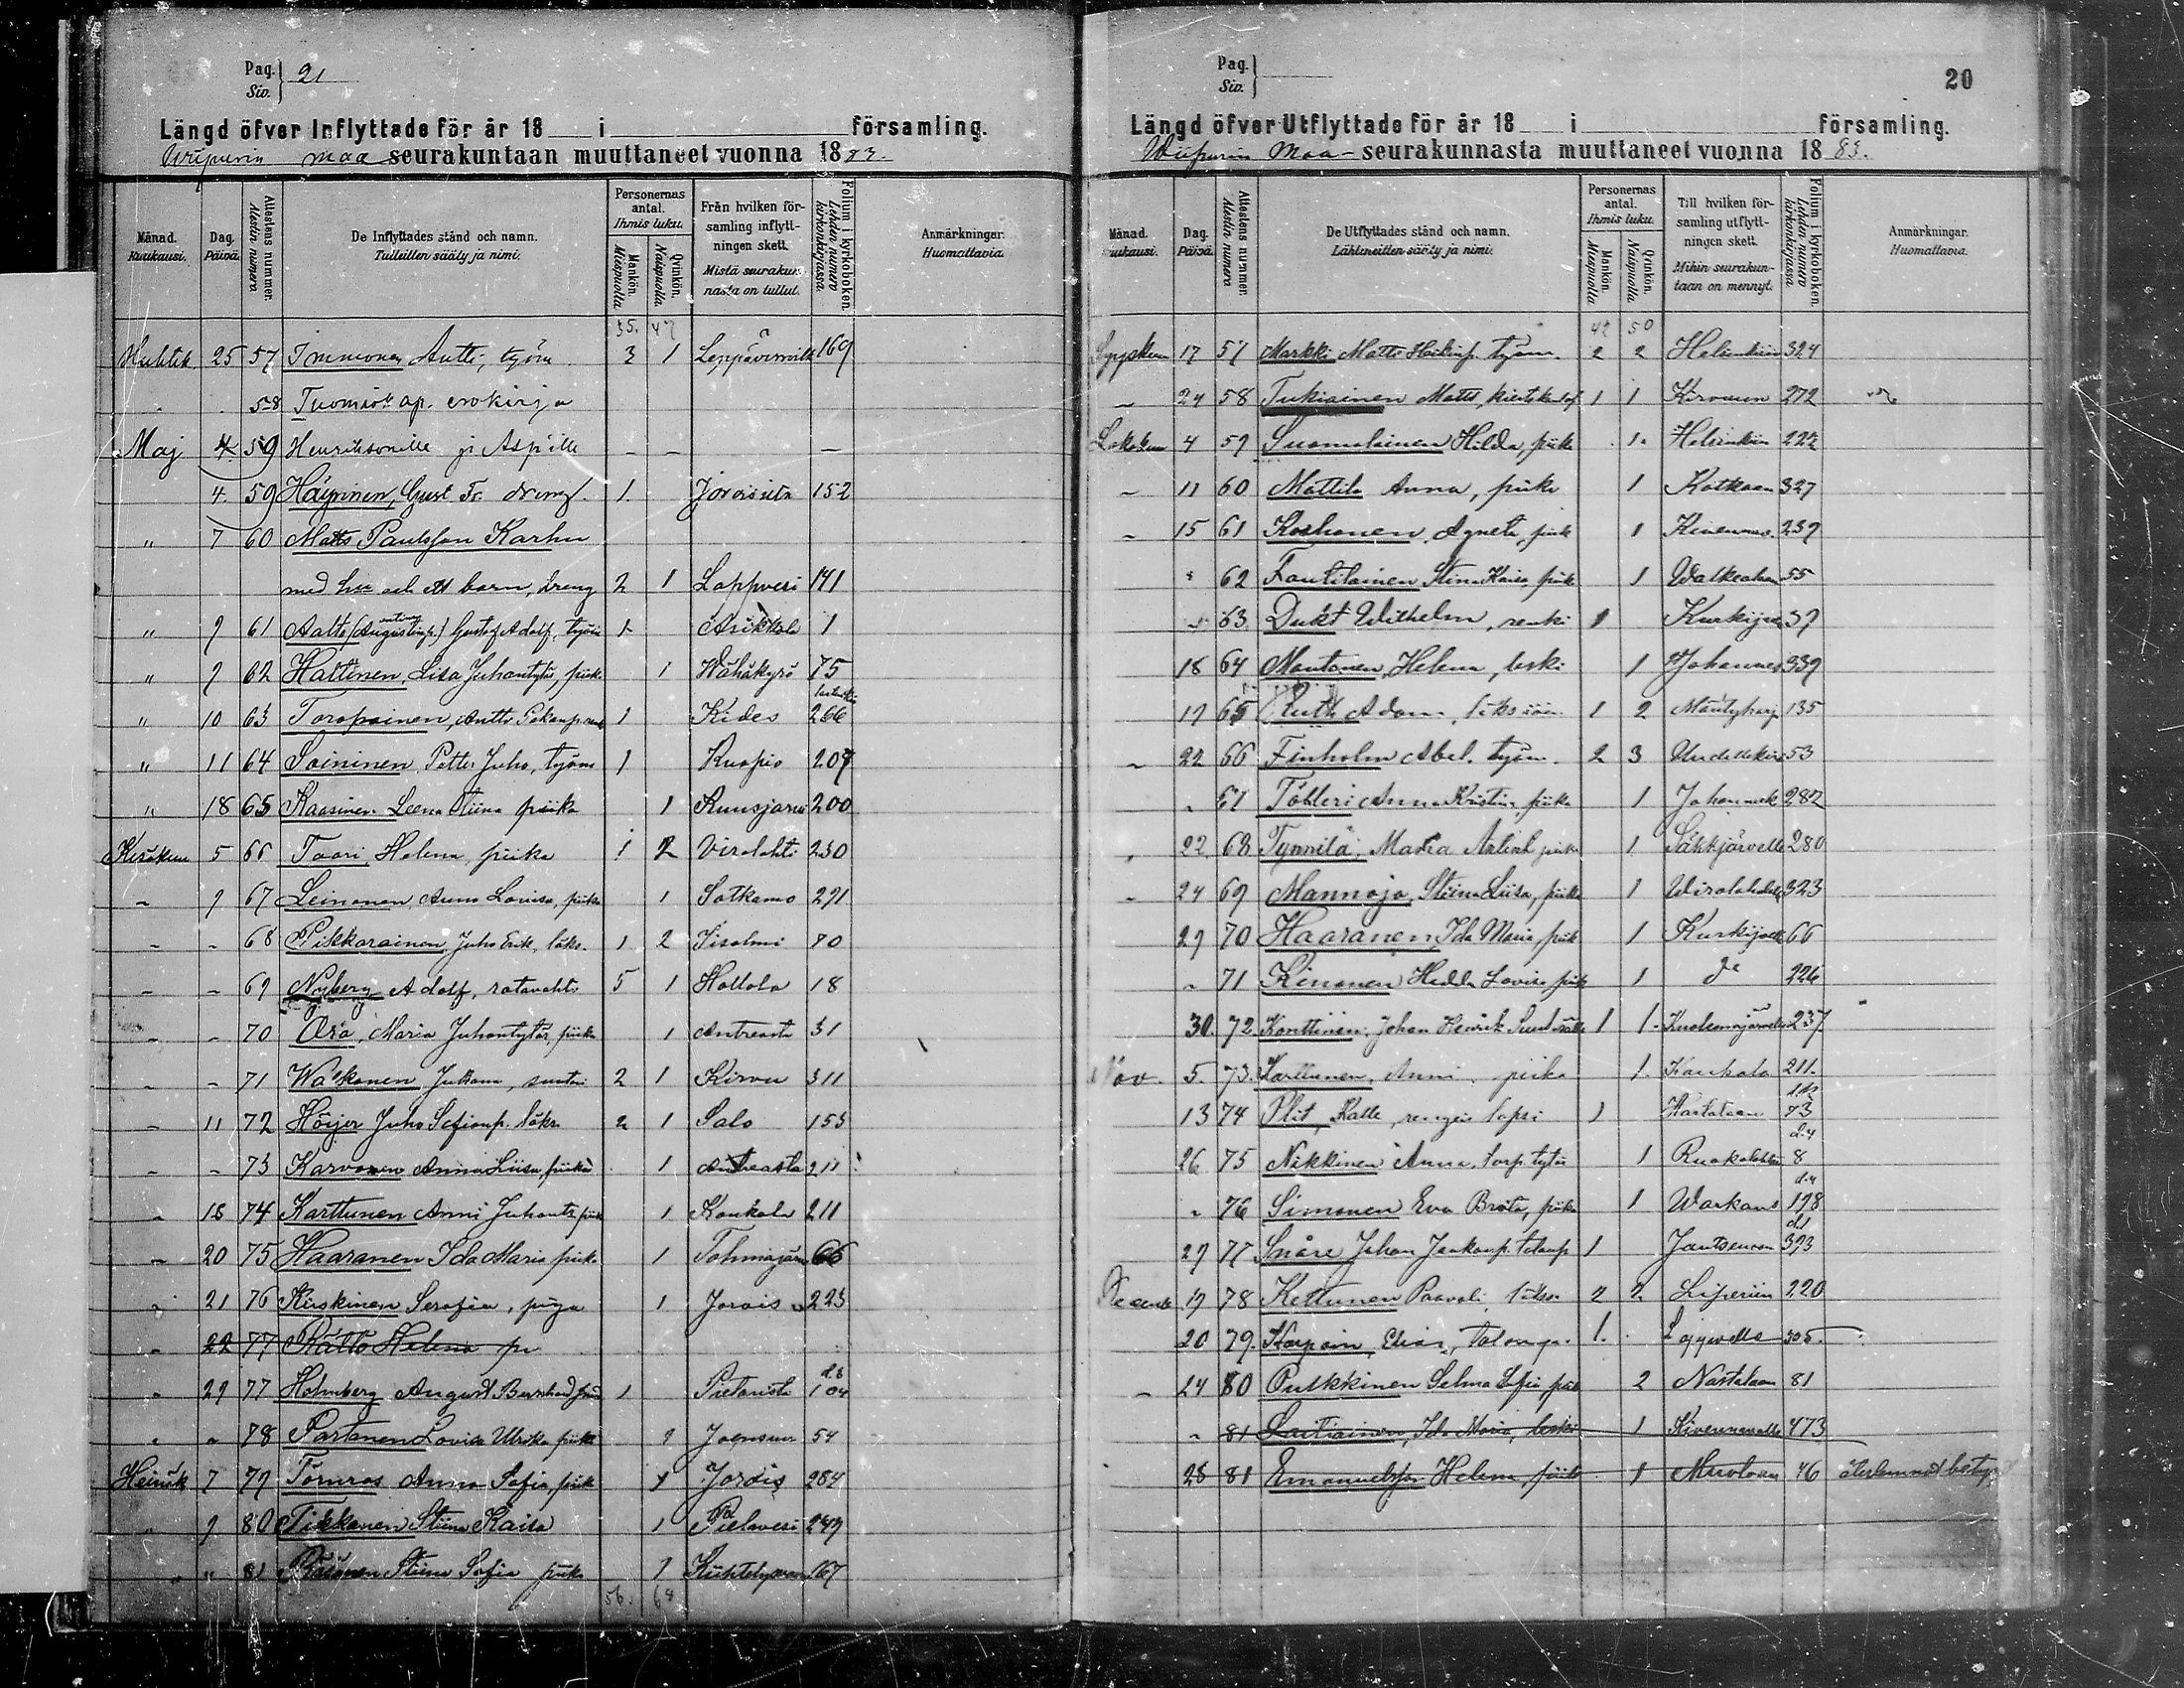 Pag. Siv. 21
Längd öfver Inflyttade för år 18 i församling.
Wiipurin maa seurakuntaan muuttaneet vuonna 1883.
Månad. Kuukausi.
Dag. Päivä.
Attestens nummer. Atestin numero
De Inflyttades stånd och namn. Tulleitten sääty ja nimi.
Personernas antal. Ihmis luku.
Mankön. Miespuolia
Qvinkön. Naispuolia.
Från hvilken församling inflyttningen skett. Mistä seurakunnasta on tullut.
Folium i kyrkoboken. Lehden numero kirkonkirjassa
Anmärkningar. Huomattavia.
35. 47
Huhtik 25 57 Immonen Antti, työm 3 1 Leppävirrilta 169
58 ap. erokirja
Maj 4 59 Henriksonille ja Asp'ille — — —
4. 59 Häyrinen, Gust. Fr. dreng. 1. Joroisista 152
" 7 60 Matts Paulsson Karhu
med hu och ett barn, dreng 2 1 Lappvesi 141
" 9 61 Aalto (Augustinp.) Gustaf Adolf, työm 1 Asikkala 1
" 9 62 Hattinen, Lisa Juhontytär, piika 1 Wähäkyrö 75
" 10 63 Toropainen, Antti 1 Kides 266
" 11 64 Soininen, Petter Juho, työm 1 Kuopio 207
" 18 65 Kaasinen Leena Stiina piika 1 Ruusjarvi 200
Kesäkuu 5 66 Taari Helena piika 1 2 Virolahti 230
" 9 67 Leinonen Anna Lovisa, piika 1 Sotkamo 291
" - 68 Pikkarainen Juho Erik, läks. 1 2 Iisalmi 90
- - 69 Nyberg Adolf, ratavahti 5 1 Hollola 18
- - 70 Ora, Maria Juhontytär, piika 1 Antrea 31
- - 71 Juhana, suutari 2 1 Kirvu 311
- 11 72 Höijer Juho läks. 2 1 Salo 153
- - 73 Karvonen Anna Liisa, piika 1 Antreasta 211
" 18 74 Karttunen Anni Juhont. piika 1 Kaukola 211
- 20 75 Haaranen Ida Maria piika 1 Tohmajärvi 66
" 21 76 Kiiskinen Serafia, piga 1 Jorois 223
" 22 77 Rättö Helena pi
" 29 77 Holmberg August Bernhard 1 Pietarista 104
" " 78 Partanen Lovisa Ulrika piika 1 Joensuu 54
Heinäk 7 79 Törnroos Anna Sofia, piik 1 Jorois 284
" 9 80 Tikkanen Stiina Kaisa 1 Pielavesi 249
" " 81 Räsänen Stiina Sofia piika 1 167
56. 68
Pag. Siv.
20
Längd öfver Utflyttade för år 18 i församling.
Wiipurin Maa-seurakunnasta muuttaneet vuonna 1883.
Månad. Kuukausi.
Dag. Päivä.
Attestens nummer. Atestin numero
De Utflyttades stånd och namn. Lähteneitten sääty ja nimi.
Personernas antal. Ihmis luku.
Mankön. Miespuolia
Qvinkön. Naispuolia.
Till hvilken församling utflyttningen skett. Mihin seurakuntaan on mennyt.
Folium i kyrkoboken. Lehden numero kirkonkirjassa
Anmärkningar. Huomattavia.
42 50
Syyskuu 17 57 Markki Matti Heikinp. työm. 2 2 Helsinkiin 324
- 24 58 Tukiainen Matts, 1 1 Kirvuun 272
Lokakuu 4 59 Suomalainen Hilda, piika 1 Helsinkiin 222
- 11 60 Mattila Anna, piika 1 Kotkaan 327
- 15 61 Koskonen, Agneta, piik 1 239
" 62 Fautilainen Stina Kaisa, piik 1 55
" 63 Dukt Wilhelm, renki 1 Kurkijoe 37
18 64 Montonen, Helena, leski 1 Johannes 339
19 65 Ruth Adam 1 2 Mäntyharj 135
- 22 66 Finholm Abel. työm. 2 3 53
" 67 Tohleri Anna Kristin. piika 1 282
" 22 68 Tynnilä, Maria piika 1 Säkkjärvelle 280
- 24 69 Mannoja, Stiina Liisa, piika 1 Wirolahdelle 323
29 70 Haaranen, Ida Maria, piik 1 Kurkijoelle 66
" 71 Kinonen Hedda Lovisa piik 1 d° 226
30. 72. Konttinen, Johan Henrik 1 1. 237
Nov. 5. 73. Karttunen, Anni, piika 1. Kaukola 211.
13 74 Plit, Kalle, rengin lapsi 1 Hartolaan 73
26 75 Nikkinen Anna, torp. tytär 1 Ruokolahti 8
" 76 Simonen Eva Brita, piika 1 Warkaus 198
29 77 Snåre Johan Jaakonp. 1 Jantseuren 393
Decemb 19 78 Kettunen Paavali, läksr 2 2 Liperiin 220
20 79. Karpain, Elias, talonp. 1. 305
- 24 80 Pulkkinen Selma Sofia piik 2 Nastolaan 81
" 81 Laitiainen, Ida Maria, leski 1 Kivennavalle 473
28 81 Emanuelsson Helena, piik 1 Muolaan 46 återlemnat betyg